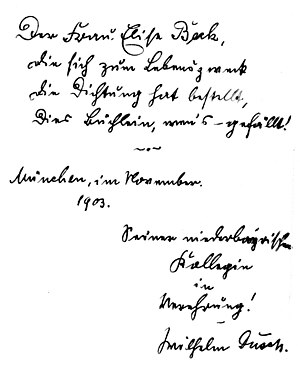 Der Frau Elise Beck,
die sich zum Lebenszweck
die Dichtung hat bestellt,
Dies Büchlein, wem's – gefällt!
München, im November.
1903.
Seiner niederbayrischen
Kollegin
in
Verehrung!
Wilhelm Busch.